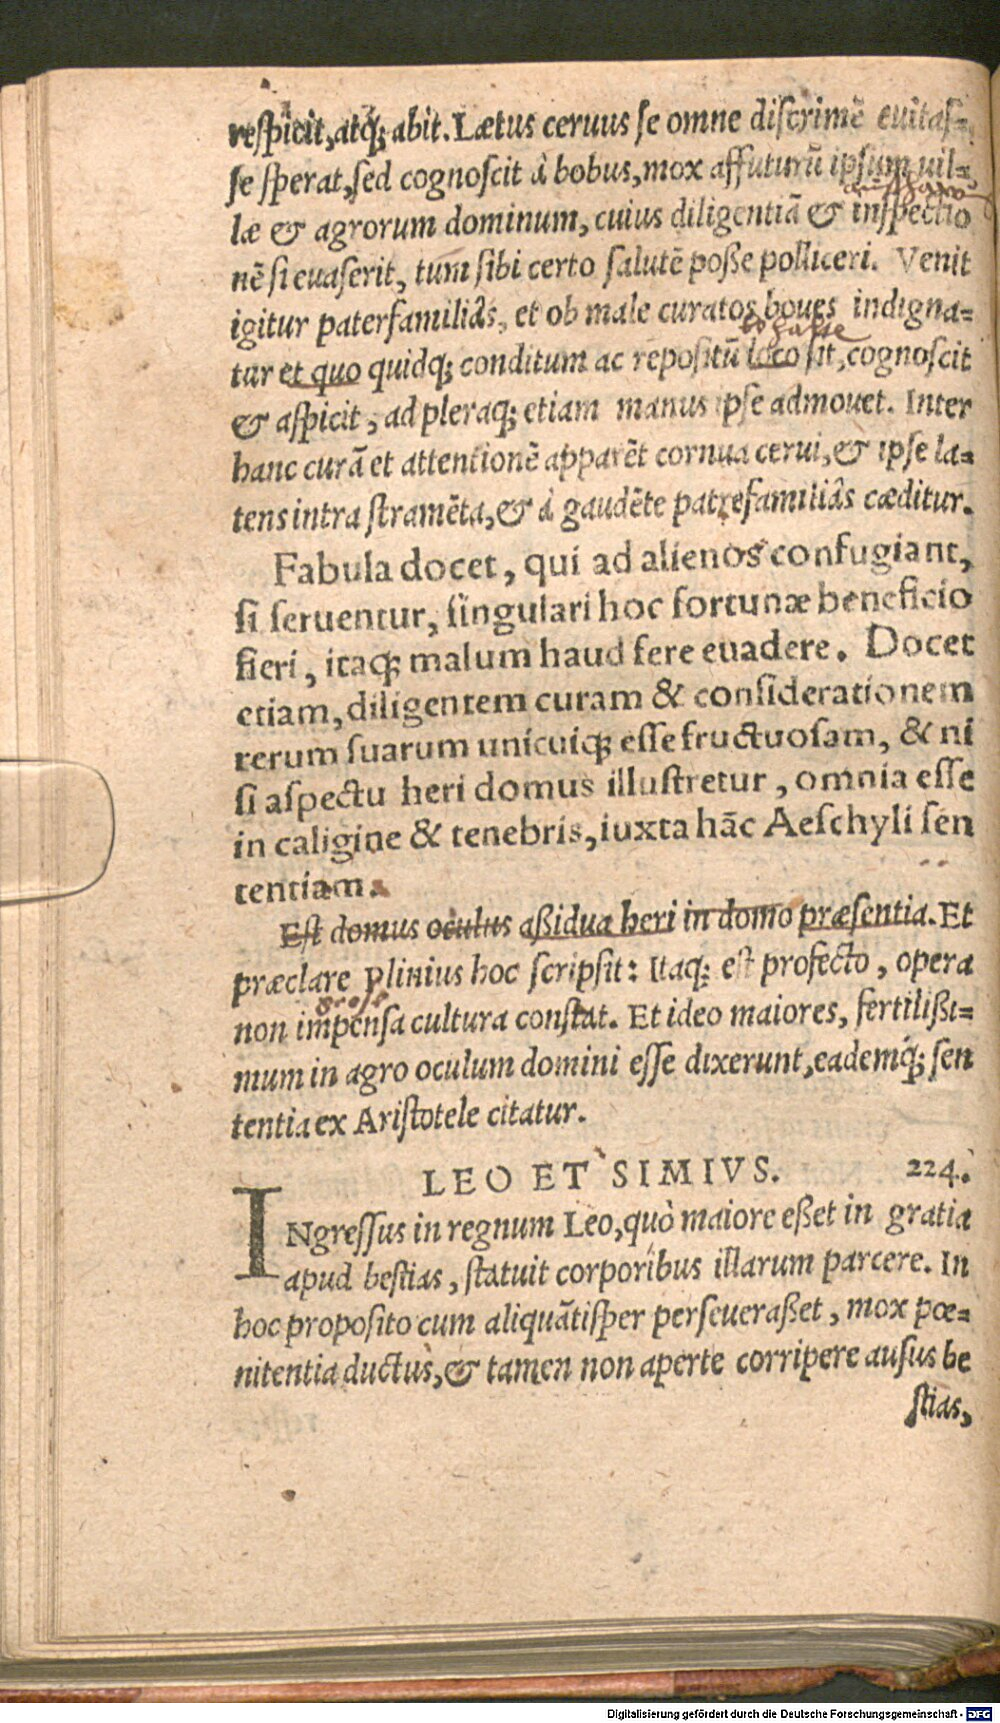 respicit, atq; abit. Lætus ceruus se omne discrimē euitas-
se sperat, sed cognoscit à bobus, mox affuturū ipsum uil-
læ & agrorum dominum, cuius diligentiā & inspectio
nē si euaserit, tum sibi certo salutē poße polliceri. Venit
igitur paterfamiliâs, et ob male curatos boues indigna-
tur et quo quidq; conditum ac repositū loco sit, cognoscit
& aspicit, ad pleraq; etiam manus ipse admouet. Inter
hanc curā et attentionē apparēt cornua cerui, & ipse la-
tens intra stramēta, & à gaudēte patrefamiliâs cæditur.
Fabula docet, qui ad alienos confugiant,
si seruentur, singulari hoc fortunæ beneficio
fieri, itaq; malum haud fere euadere. Docet
etiam, diligentem curam & considerationem
rerum suarum unicuiq; esse fructuosam, & ni
si aspectu heri domus illustretur, omnia esse
in caligine & tenebris, iuxta hāc Aeschyli sen
tentiam.
Est domus oculus aßidua heri in domo præsentia. Et
præclare Plinius hoc scripsit: Itaq; est profecto, opera
non impensa cultura constat. Et ideo maiores, fertilißi-
mum in agro oculum domini esse dixerunt, eademq́; sen
tentia ex Aristotele citatur.
LEO ET SIMIVS. 224.
INgressus in regnum Leo, quò maiore eßet in gratia
apud bestias, statuit corporibus illarum parcere. In
hoc proposito cum aliquātisper perseueraßet, mox pœ-
nitentia ductus, & tamen non aperte corripere ausus be
stias,
Digitalisierung gefördert durch die Deutsche Forschungsgemeinschaft - DFG